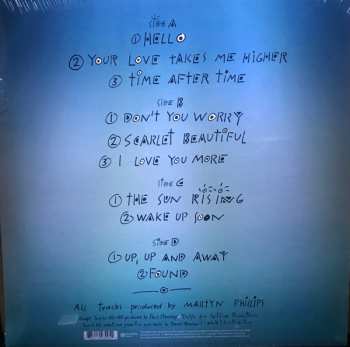 SIDE A
① HELLO
② YOUR LOVE TAKES ME HIGHER
③ TIME AFTER TIME
SIDE B
① DON'T YOU WORRY
② SCARLET BEAUTIFUL
③ I LOVE YOU MORE
SIDE C
① THE SUN RISING
② WAKE UP SOON
SIDE D
① UP, UP AND AWAY
② FOUND
ALL TRACKS PRODUCED BY MARTYN PHILIPS